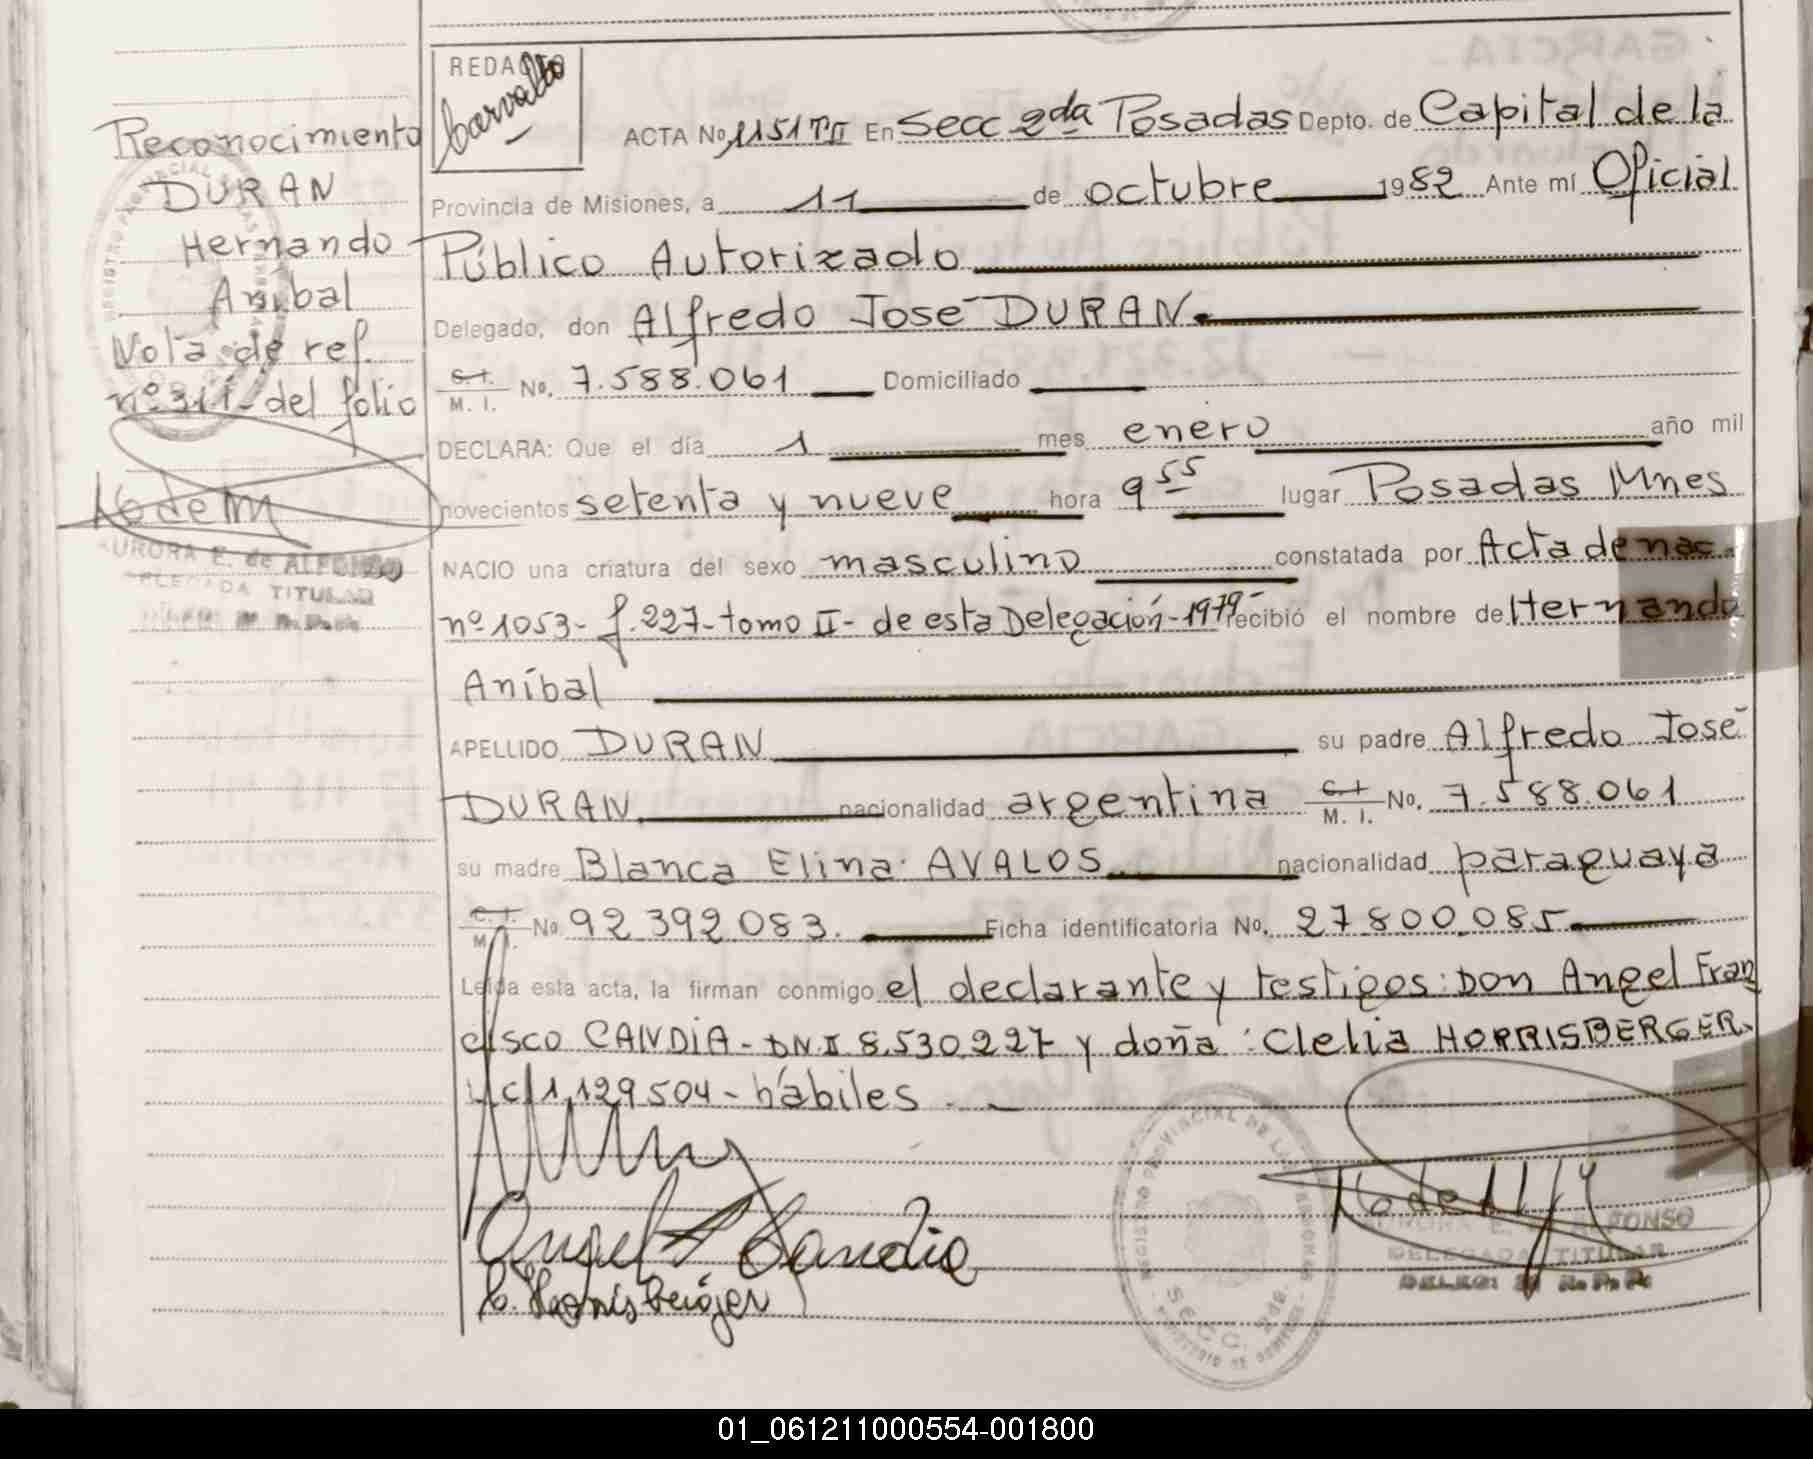 Reconocimiento
DURAN
Hernando
Anibal
Nota de ref.
nº 311- del folio
AURORA E. de ALFONSO
DELEGADA TITULAR
REDACTO
Carvallo
ACTA No 1151 TII En Secc 2da Posadas Depto. de Capital de la
Provincia de Misiones, a 11 de octubre 1982 Ante mí Oficial
Público Autorizado
Delegado, don Alfredo José DURAN
C. I. M. I. No. 7.588.061 Domiciliado
DECLARA: Que el día 1 mes enero año mil
novecientos setenta y nueve hora 9 55 lugar Posadas Mnes
NACIO una criatura del sexo masculino constatada por Acta de nac.
nº 1053- f. 227- tomo II- de esta Delegación-1979- recibió el nombre de Hernando
Aníbal
APELLIDO DURAN su padre Alfredo José
DURAN nacionalidad argentina C. I. M. I. No. 7.588.061
su madre Blanca Elina AVALOS nacionalidad paraguaya
C. I. M. I. No. 92.392.083. Ficha identificatoria No. 27.800.085
Leída esta acta, la firman conmigo el declarante y testigos: Don Angel Fran
cisco CANDIA - DNI 8.530.227 y doña: Clelia HORRISBERGER
LC 1.129504 - hábiles.
Angel F Candia
C. Horrisberger
REGISTRO PROVINCIAL DE LAS PERSONAS
SECC. 2da.
AURORA E. de ALFONSO
DELEGADA TITULAR
01_061211000554-001800